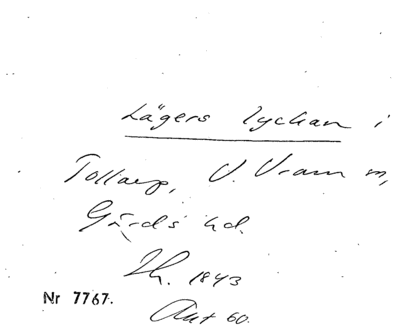 Lägers lyckan i
Tollarp, V. Vram m,
Gärds hd.
Th. 1843
Nr 7767.
Ant 60.